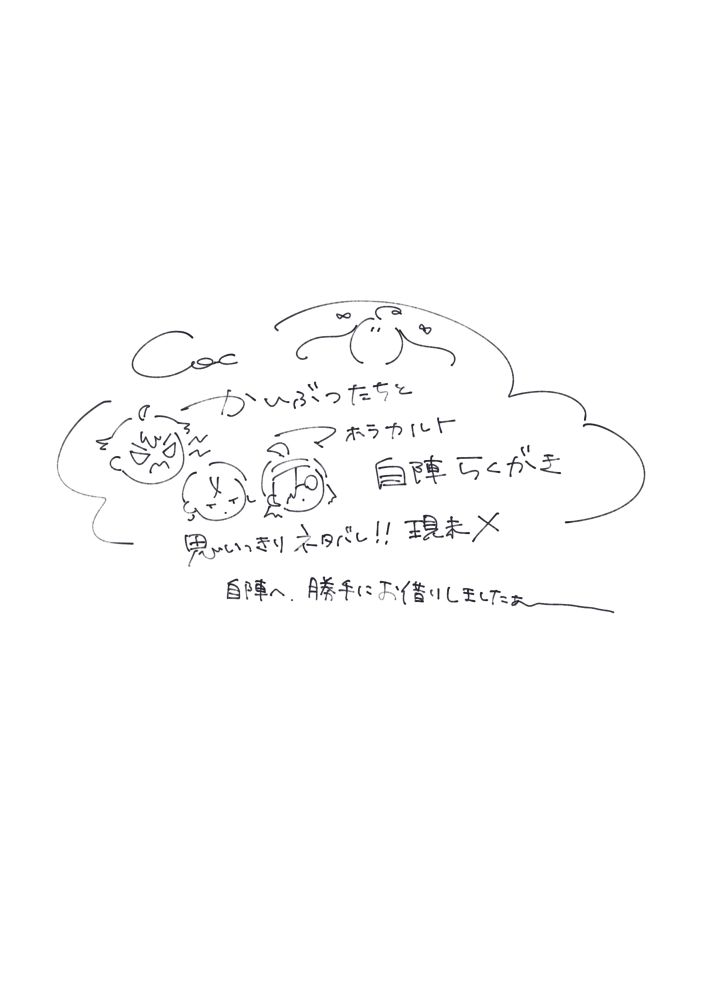 CoC
かいぶつたちと
ホラカルト
自陣らくがき
思いっきりネタバレ!! 現未×
自陣へ、勝手にお借りしましたぁー